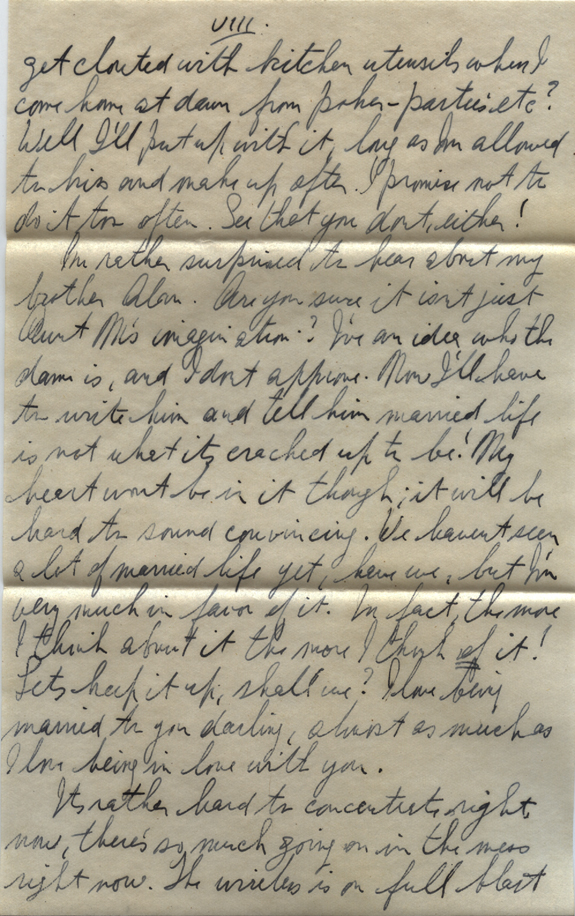 VIII.
get clouted with kitchen utensils when I
come home at dawn from poker-parties, etc?
Well I'll put up with it, long as I'm allowed
to kiss and make up after. I promise not to
do it too often. See that you don't, either!
I'm rather surprised to hear about my
brother Alan. Are you sure it isn't just
Aunt M's imagination? I've an idea who the
dame is, and I don't approve. Now I'll have
to write him and tell him married life
is not what it's cracked up to be! My
heart won't be in it though; it will be
hard to sound convincing. We haven't seen
a lot of married life yet, have we, but I'm
very much in favor of it. In fact, the more
I think about it the more I think of it!
Lets keep it up, shall we? I love being
married to you darling, almost as much as
I love being in love with you.
Its rather hard to concentrate right
now, there's so much going on in the mess
right now. The wireless is on full blast